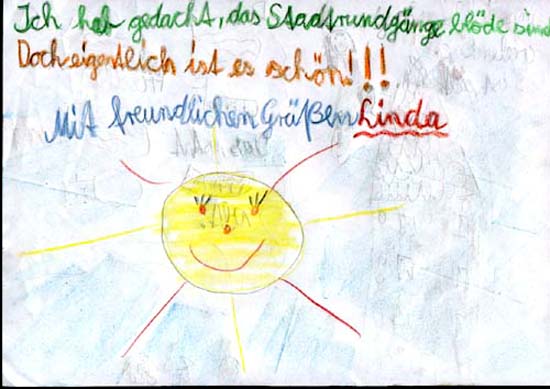 Ich hab gedacht, das Stadtrundgänge blöde sind
Doch eigentlich ist es schön!!!
Mit freundlichen Grüßen Linda